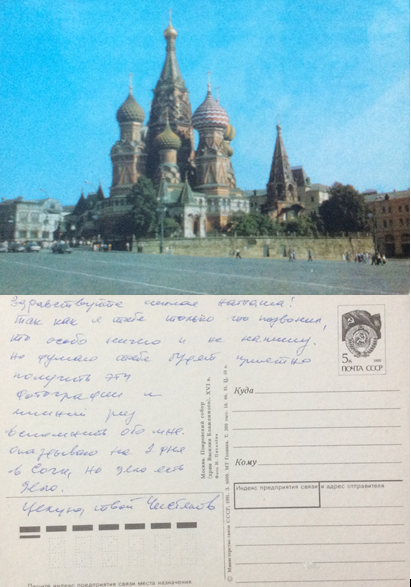 Здравствуйте милая Наташа!
Так как я тебе только что позвонил,
то особо ничего и не напишу.
Но думаю тебе будет приятно
получить эту
фотографию и
лишний раз
вспомнить обо мне.
на 2 дня
в Сочи, но дело есть
дело.
Целую, твой Чистяков
Москва. Покровский собор
(храм Василия Блаженного). XVI в.
5к
ПОЧТА СССР
Куда
Кому
Индекс предприятия связи и адрес отправителя
Пишите индекс предприятия связи места назначения